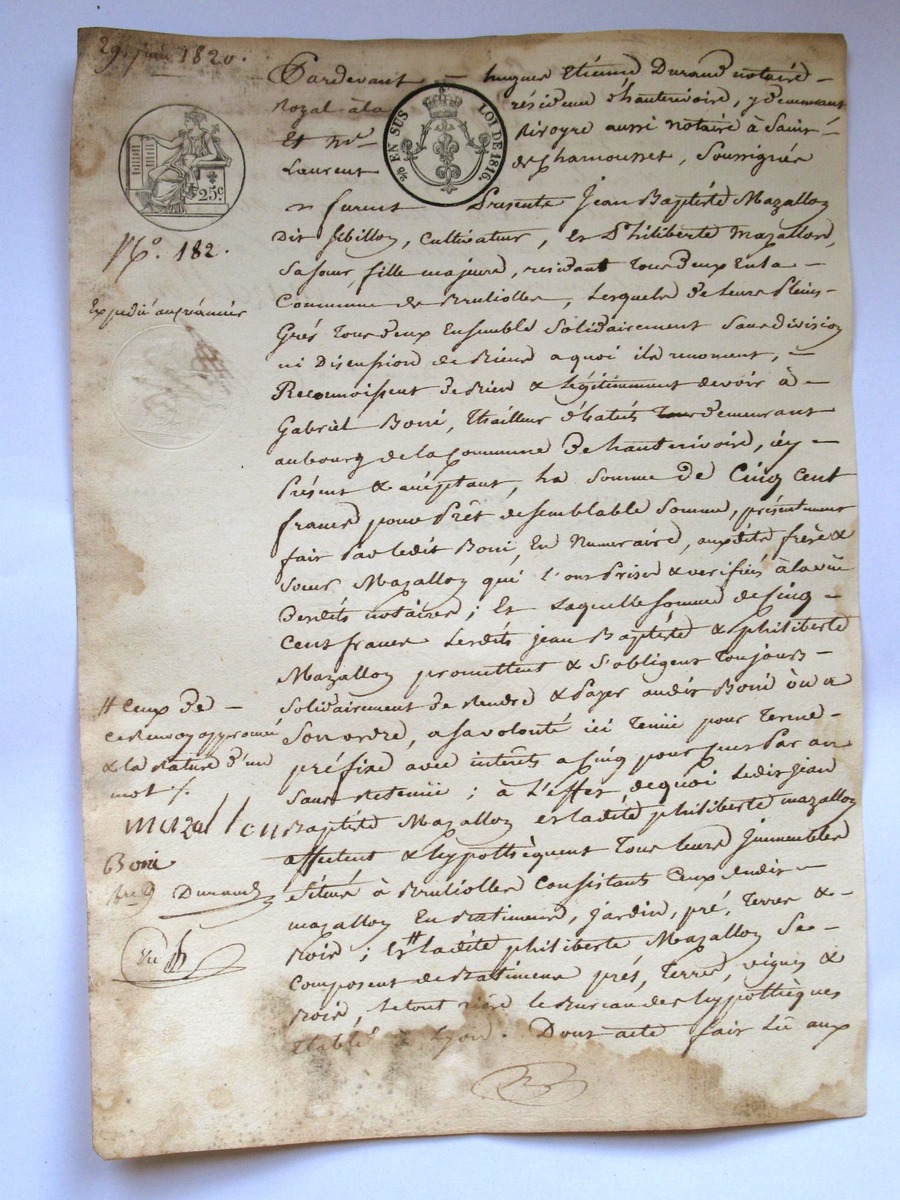 29 juin 1820.
Pardevant hugues Etienne Durand notaire
royal à la résidence d'hauterivoire, y demeurant
Et Me Rivoyre aussi notaire à Saint
Laurent de Chamousset, Soussignés
furent Présents Jean Baptiste Mazallon
dit fibillon, Cultivateur, Et Philiberte Mazallon,
Sa sœur, fille majeure, residant Tous deux En la
Commune de Brullioles, Lesquels de Leurs Pleins
Grés Tous deux Ensemble Solidairement Sans division
ni Discussion de Biens a quoi ils renoncent,
Reconnoissent de Bien & Légitimement devoir à
Gabriel Boni, Thailleur d'habits demeurant
au bourg de la Commune d'hauterivoire, icy
Présent & acceptant, La Somme de Cinq Cent
francs pour Prêt de semblable Somme, présentement
fait Par ledit Boni, En Numeraire, auxdits frère &
Sœur Mazallon qui l'ont Prise & verifiée à la vüe
Desdits notaires ; Et Laquelle Somme de Cinq
Cent francs Lesdits Jean Baptiste & Philiberte
Mazallon promettent & S'obligent Toujours
Solidairement de Rendre & Payer audit Boni ou a
Son ordre, a sa volonté ici Tenue pour Terme
préfixe avec intérêts a Cinq pour Cent Par an
Sans Retenue ; à L'effet de quoi Ledit Jean
Baptiste Mazallon et ladite philiberte mazallon
affectent & hypothèquent Tous leurs Immeubles
Situés à Brullioles Consistants Ceux dudit
mazallon En Batiments, Jardin, pré, Terres &
Bois ; Et # ladite philiberte Mazallon Se
Composent de Batiments prés, Terres, vignes &
Bois, Le tout rière le Bureau des hypothèques
établi à Lyon. Dont acte fait Lû aux
25 c.
No. 182.
Expedié au créancier
EN SUS LOI DE 1816.
# Ceux de
Ce Renvoy approuvé
& la rature d'un
mot /.
mazallon
Boni
Durand